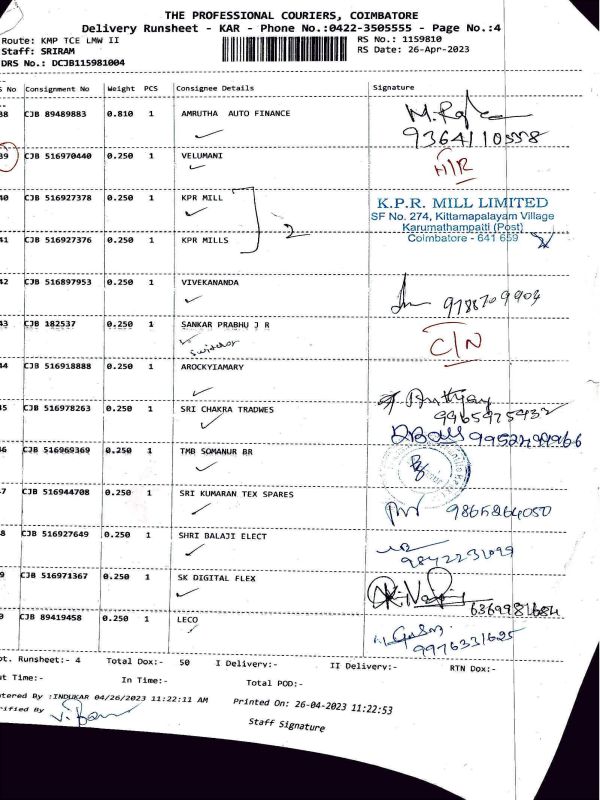 THE PROFESSIONAL COURIERS, COIMBATORE
Delivery Runsheet - KAR - Phone No.:0422-3505555 - Page No.:4
Route: KMP TCE LMW II
RS No.: 1159810
Staff: SRIRAM
RS Date: 26-Apr-2023
DRS No.: DCJB115981004
S No Consignment No Weight PCS Consignee Details Signature
38 CJB 89489883 0.810 1 AMRUTHA AUTO FINANCE
9364110558
39 CJB 516970440 0.250 1 VELUMANI
H/R
40 CJB 516927378 0.250 1 KPR MILL
K.P.R. MILL LIMITED
SF No. 274, Kittamapalayam Village
Karumathampatti (Post)
Coimbatore - 641 659
2
41 CJB 516927376 0.250 1 KPR MILLS
42 CJB 516897953 0.250 1 VIVEKANANDA
9788709903
43 CJB 182537 0.250 1 SANKAR PRABHU J R
C/N
44 CJB 516918888 0.250 1 AROCKYIAMARY
9965925432
45 CJB 516978263 0.250 1 SRI CHAKRA TRADWES
46 CJB 516969369 0.250 1 TMB SOMANUR BR
47 CJB 516944708 0.250 1 SRI KUMARAN TEX SPARES
9865864050
8 CJB 516927649 0.250 1 SHRI BALAJI ELECT
9842231099
9 CJB 516971367 0.250 1 SK DIGITAL FLEX
6369981684
0 CJB 89419458 0.250 1 LECO
9976331625
ot. Runsheet:- 4 Total Dox:- 50 I Delivery:- II Delivery:- RTN Dox:-
ut Time:- In Time:- Total POD:-
tered By :INDUKAR 04/26/2023 11:22:11 AM Printed On: 26-04-2023 11:22:53
rified By
Staff Signature